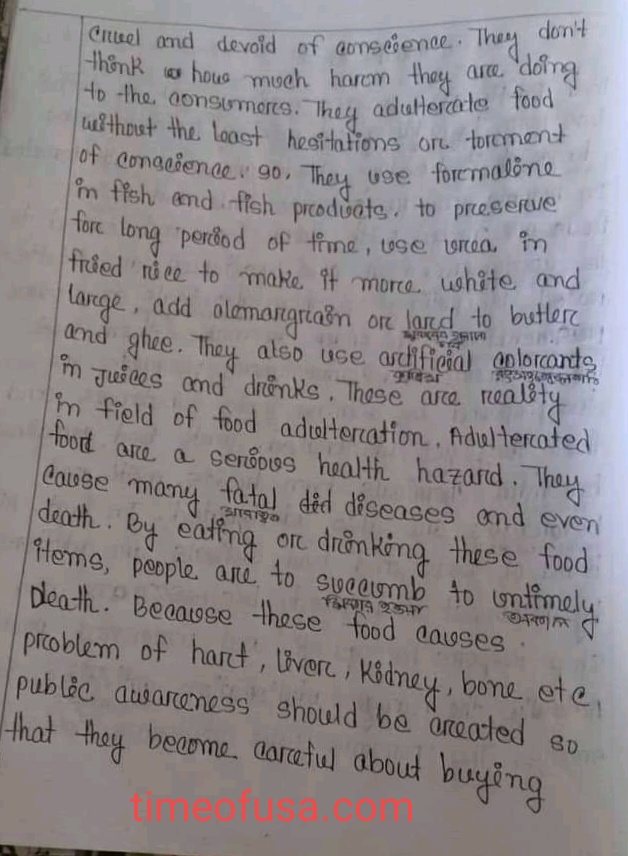 cruel and devoid of conscience. They don't
think how much harm they are doing
to the consumers. They adultercate food
without the least hesitations or torment
of conscience. so. They use formaline
in fish and fish products. to preserve
for long period of time, use urea in
fried rice to make it more white and
large, add olomargrain or lard to butter
and ghee. They also use artificial colorcants
in juices and drinks. These are reality
in field of food adultercation. Adultercated
food are a serious health hazard. They
cause many fatal diseases and even
death. By eating or drinking these food
items, people are to succumb to untimely
death. Because these food causes
problem of hart, liver, kidney, bone etc,
public awareness should be created so
that they become careful about buying
timeofusa.com